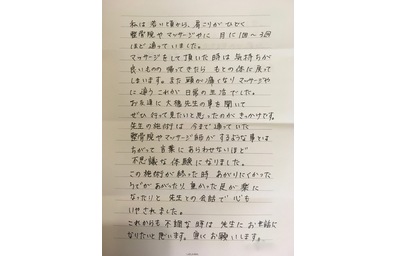 私は若い頃から、肩こりがひどく
整骨院やマッサージやに 月に1回〜3回
ほど通っていました。
マッサージをして頂いた時は気持ちが
良いものの帰ってきたら もとの体に戻って
しまいます。また頭が痛くなりマッサージや
に通う これが日常の生活でした。
お友達に大穂先生の事を聞いて
ぜひ行って見たいと思ったのがきっかけです。
先生の施術は 今まで通っていた
整骨院やマッサージ師がするような事とは
ちがって言葉にあらわせないほど
不思議な体験になりました。
この施術が終った時 あがりにくかった
うでがあがったり 重かった足が楽に
なったりと 先生との会話で心も
いやされました。
これからも不調な時は 先生にお世話に
なりたいと思います。宜しくお願いします。